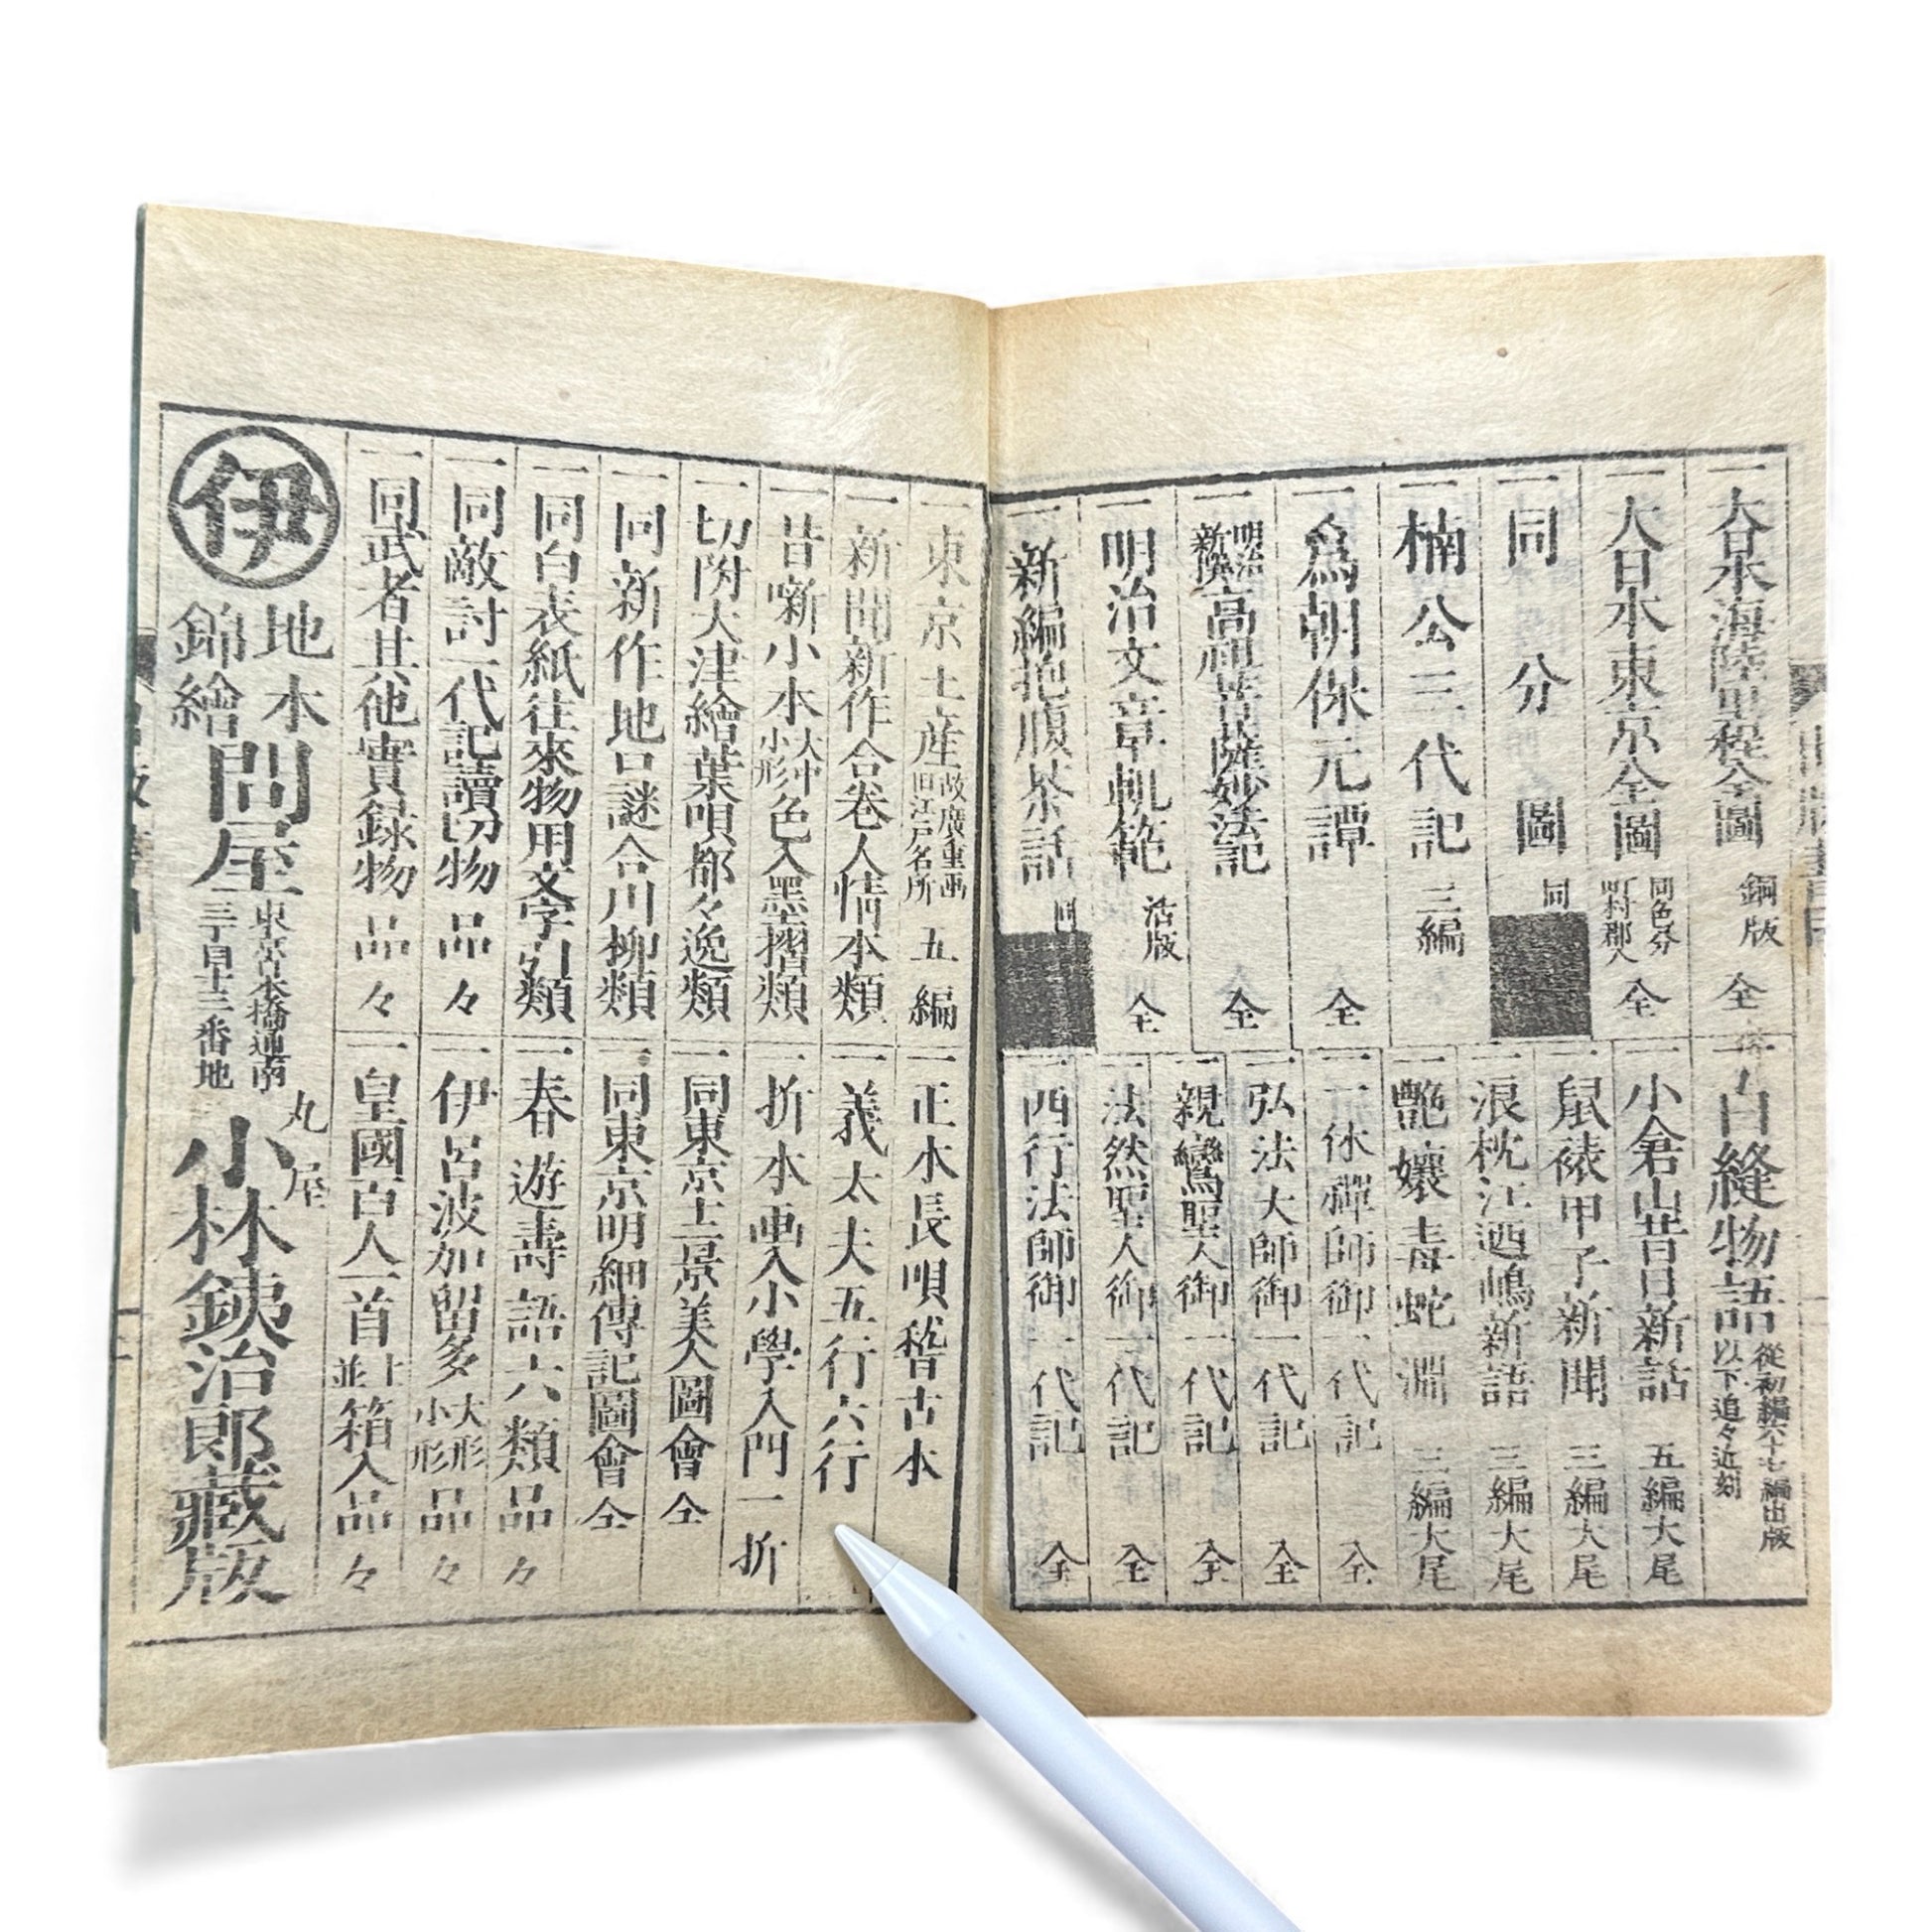 一大日本海陸里程全圖 銅版 全
一大日本東京全圖 同色分 町村郡入 全
一同分圖 同
一楠公三代記 三編
一爲朝保元譚 全
一明治新撰高祖
妙法記 全
一明治文章軌範 活版 全
一新編抱腹茶話
白縫物語 從初編六十七編出版 以下追々近刻
一小倉山昔日新話 五編大尾
一鼠裱甲子新聞 三編大尾
一浪枕江廼嶋新語 三編大尾
一艶孃毒蛇淵 三編大尾
一一休禪師御一代記 全
一弘法大師御一代記 全
一親鸞聖人御一代記 全
一法然聖人御一代記 全
一西行法師御一代記 全
一東京土産 故廣重画 旧江戸名所 五編
一新聞新作合巻人情本類
一昔噺小本 大中小形 色入墨摺類
一切附大津繪葉唄都々逸類
一同新作地口謎合川柳類
一同白表紙往來物用文字引類
一同敵討一代記讀切物 品々
一同武者其他實録物 品々
一正本長唄稽古本
一義太夫五行六行
一折本画入小學入門 一折
一同東京土景美人圖會 全
一同東京明細傳記圖會 全
一春遊壽語六類 品々
一伊呂波加留多 大形小形 品々
一皇國百人一首 上並 箱入品々
伊
地本
錦繪
問屋
東京日本橋通南
三丁目十三番地
丸屋
小林鉄治郎藏版